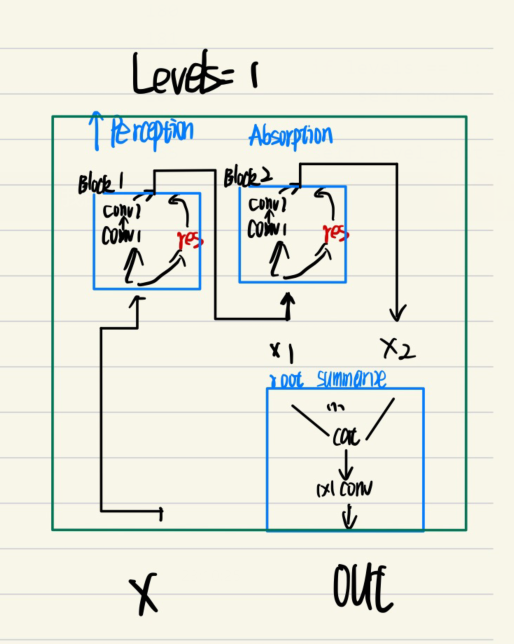 Levels = 1
Perception
Absorption
Block 1
Block 2
conv2
conv1
res
conv2
conv1
res
x1
x2
root summarize
...
cat
1x1 conv
X
out